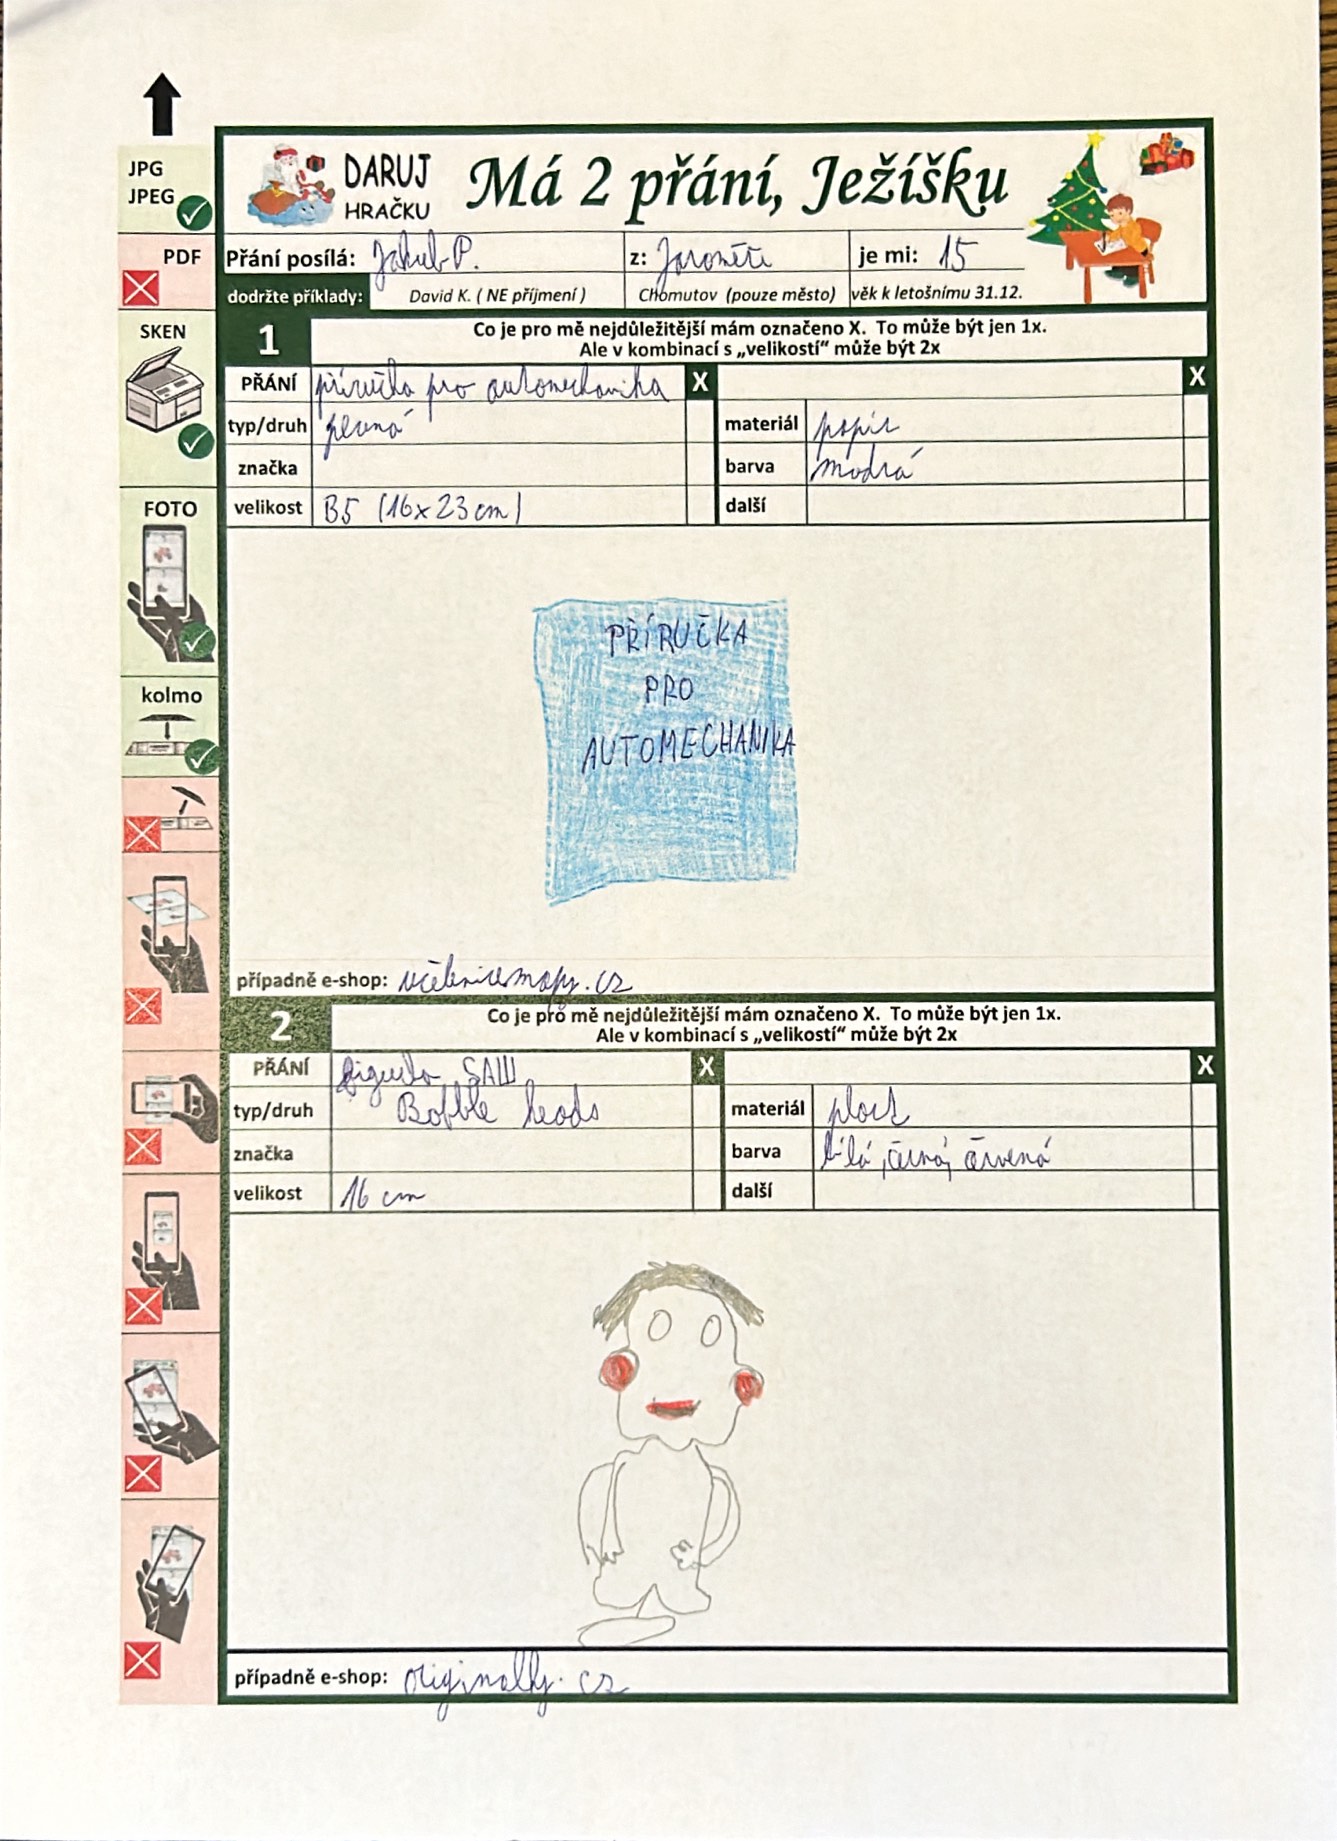 JPG
JPEG
PDF
SKEN
FOTO
kolmo
DARUJ
HRAČKU
Má 2 přání, Ježíšku
Přání posílá: Jakub P. z: Jaroměře je mi: 15
dodržte příklady: David K. ( NE příjmení ) Chomutov (pouze město) věk k letošnímu 31.12.
1 Co je pro mě nejdůležitější mám označeno X. To může být jen 1x.
Ale v kombinací s „velikostí“ může být 2x
PŘÁNÍ příručka pro automechanika X X
typ/druh pevná materiál papír
značka barva modrá
velikost B5 (16x23cm) další
PŘÍRUČKA
PRO
AUTOMECHANIKA
případně e-shop: učebnicemapy.cz
2 Co je pro mě nejdůležitější mám označeno X. To může být jen 1x.
Ale v kombinací s „velikostí“ může být 2x
PŘÁNÍ figurka SAW X X
typ/druh Bobble heads materiál plast
značka barva bílá, černá, červená
velikost 16 cm další
případně e-shop: originally.cz